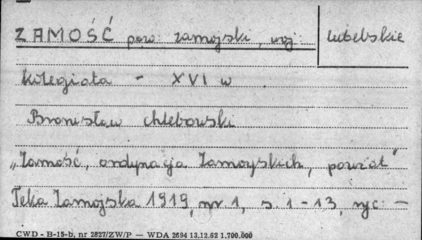 ZAMOŚĆ pow. zamojski, woj. lubelskie
kolegiata - XVI w
Bronisław Chlebowski
„Zamość, ordynacja Zamoyskich, powiat"
Teka Zamojska 1919, nr 1, s. 1-13, ryc. -
CWD - B-15-b, nr 2827/ZW/P — WDA 2694 13.12.62 1.700.000